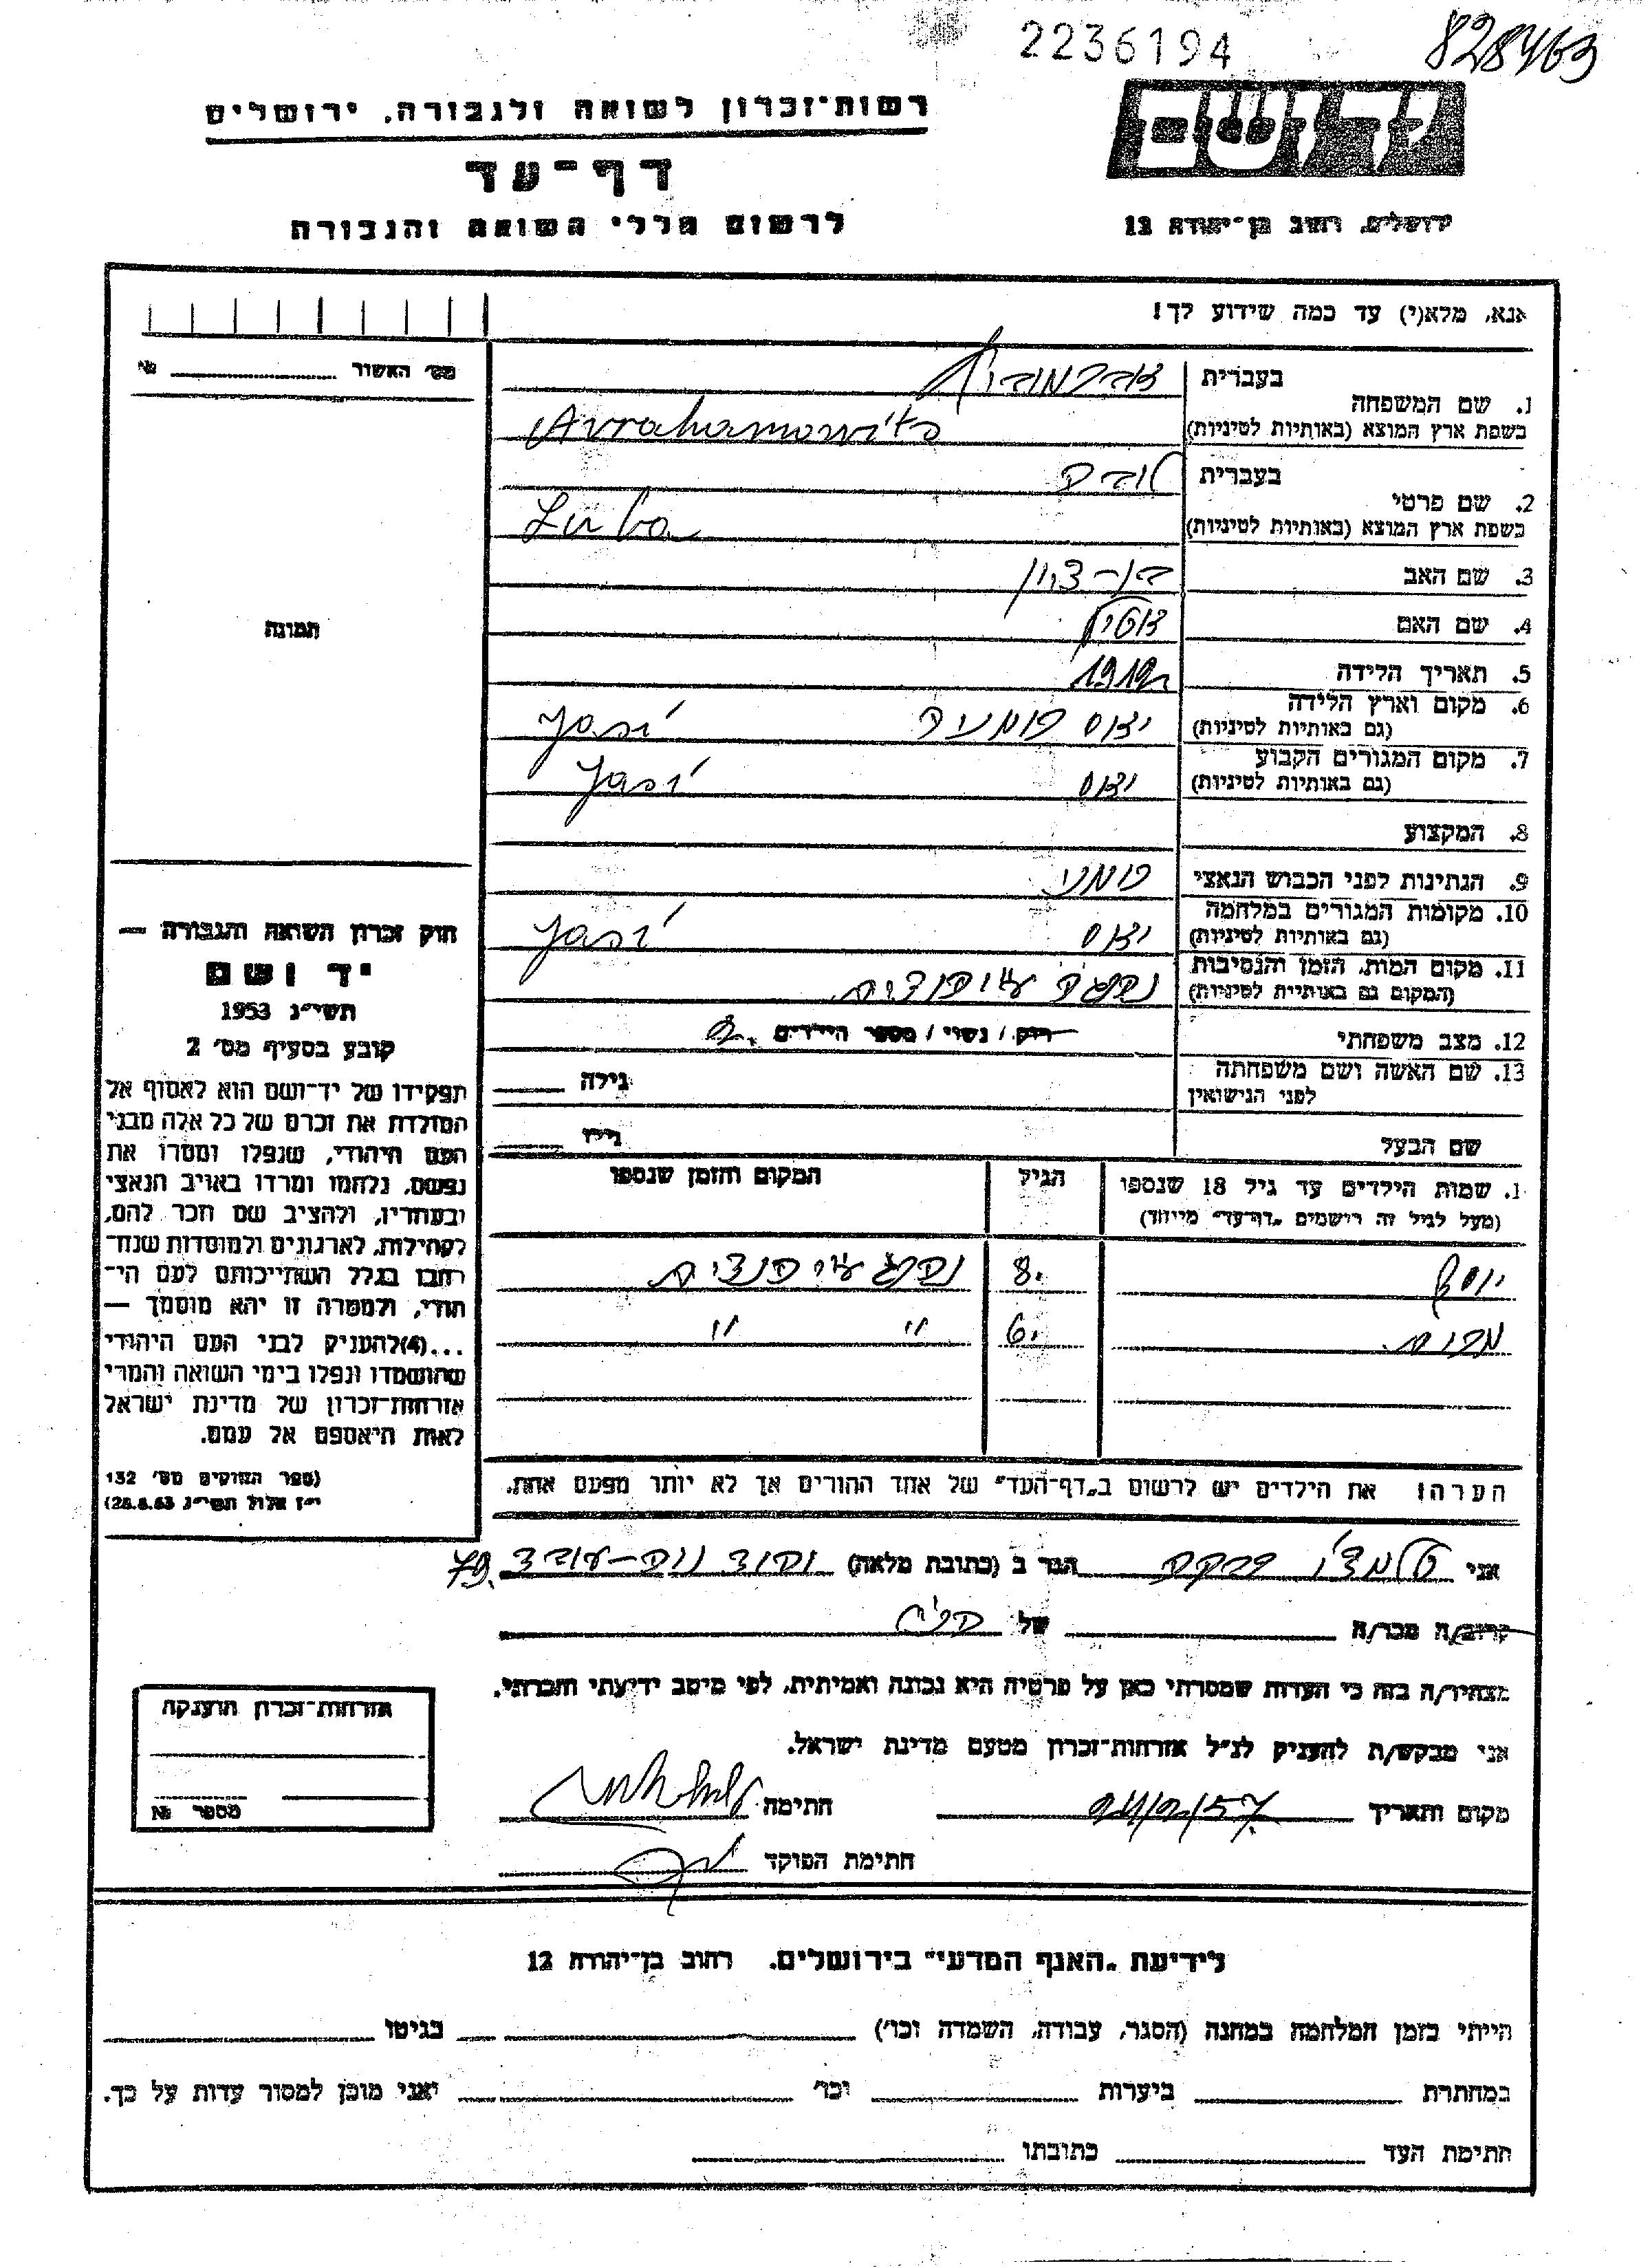 2236194
828463
רשות־זכרון לשואה ולגבורה, ירושלים
דף־עד
לרשום חללי השואה והגבורה
ידושם
ירושלים, רחוב בן־יהודה 12
אנא, מלא(י) עד כמה שידוע לך!
מס׳ האשור №
בעברית אברמוביץ
1. שם המשפחה
בשפת ארץ המוצא (באותיות לטיניות) Avrahamowits
בעברית לובה
2. שם פרטי
בשפת ארץ המוצא (באותיות לטיניות) Luba
3. שם האב בן-ציון
4. שם האם
5. תאריך הלידה 1912
6. מקום וארץ הלידה יאסי רומניה Jasi
(גם באותיות לטיניות)
7. מקום המגורים הקבוע יאסי Jasi
(גם באותיות לטיניות)
8. המקצוע
9. הנתינות לפני הכבוש הנאצי רומני
10. מקומות המגורים במלחמה יאסי Jasi
(גם באותיות לטיניות)
11. מקום המות, הזמן והנסיבות
(המקום גם באותיות לטיניות)
12. מצב משפחתי רווק / נשוי / מספר הילדים 2.
13. שם האשה ושם משפחתה
לפני הנישואין גילה
שם הבעל גילו
תמונה
חוק זכרון השואה והגבורה —
יד ושם
תשי״ג 1953
קובע בסעיף מס׳ 2
תפקידו של יד־ושם הוא לאסוף אל
המולדת את זכרם של כל אלה מבני
העם היהודי, שנפלו ומסרו את
נפשם, נלחמו ומרדו באויב הנאצי
ובעוזריו, ולהציב שם וזכר להם,
לקהילות, לארגונים ולמוסדות שנח־
רבו בגלל השתייכותם לעם הי־
הודי, ולמטרה זו יהא מוסמך —
...(4) להעניק לבני העם היהודי
שהושמדו ונפלו בימי השואה והמרי
אזרחות־זכרון של מדינת ישראל
לאות היאספם אל עמם.
(ספר החוקים מס׳ 132
י״ז אלול תשי״ג 28.8.53)
1. שמות הילדים עד גיל 18 שנספו
(מעל לגיל זה רישמים „דף־עד״ מייוחד)
הגיל
המקום והזמן שנספו
יוסף 8.
6. " "
הערה! את הילדים יש לרשום ב„דף־העד״ של אחד ההורים אך לא יותר מפעם אחת.
אני רבקה הגר ב (כתובת מלאה) 79.
קרוב/ה מכר/ה של
מצהיר/ה בזה כי העדות שמסרתי כאן על פרטיה היא נכונה ואמיתית, לפי מיטב ידיעתי והכרתי.
אני מבקש/ת להעניק לנ״ל אזרחות־זכרון מטעם מדינת ישראל.
מקום ותאריך חתימה
חתימת הפוקד
אזרחות־זכרון הוענקה
מספר №
לידיעת „האגף המדעי״ בירושלים, רחוב בן־יהודה 12
הייתי בזמן המלחמה במחנה (הסגר, עבודה, השמדה וכו׳) בגיטו
במחתרת ביערות וכו׳ ואני מוכן למסור עדות על כך.
חתימת העד כתובתו